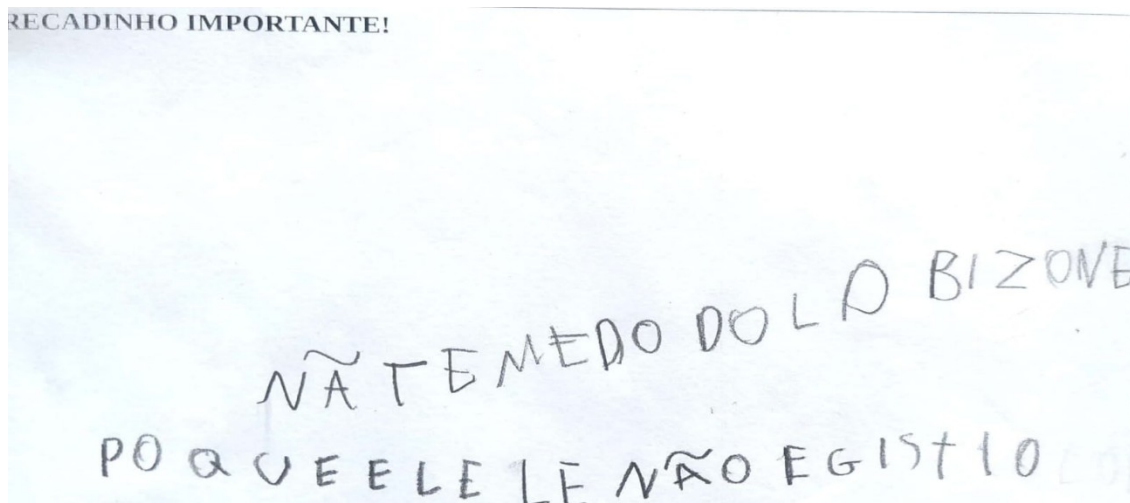 RECADINHO IMPORTANTE!
NÃ TE MEDO DO LO BIZONE
PO QUE ELE LE NÃO EGISTIO